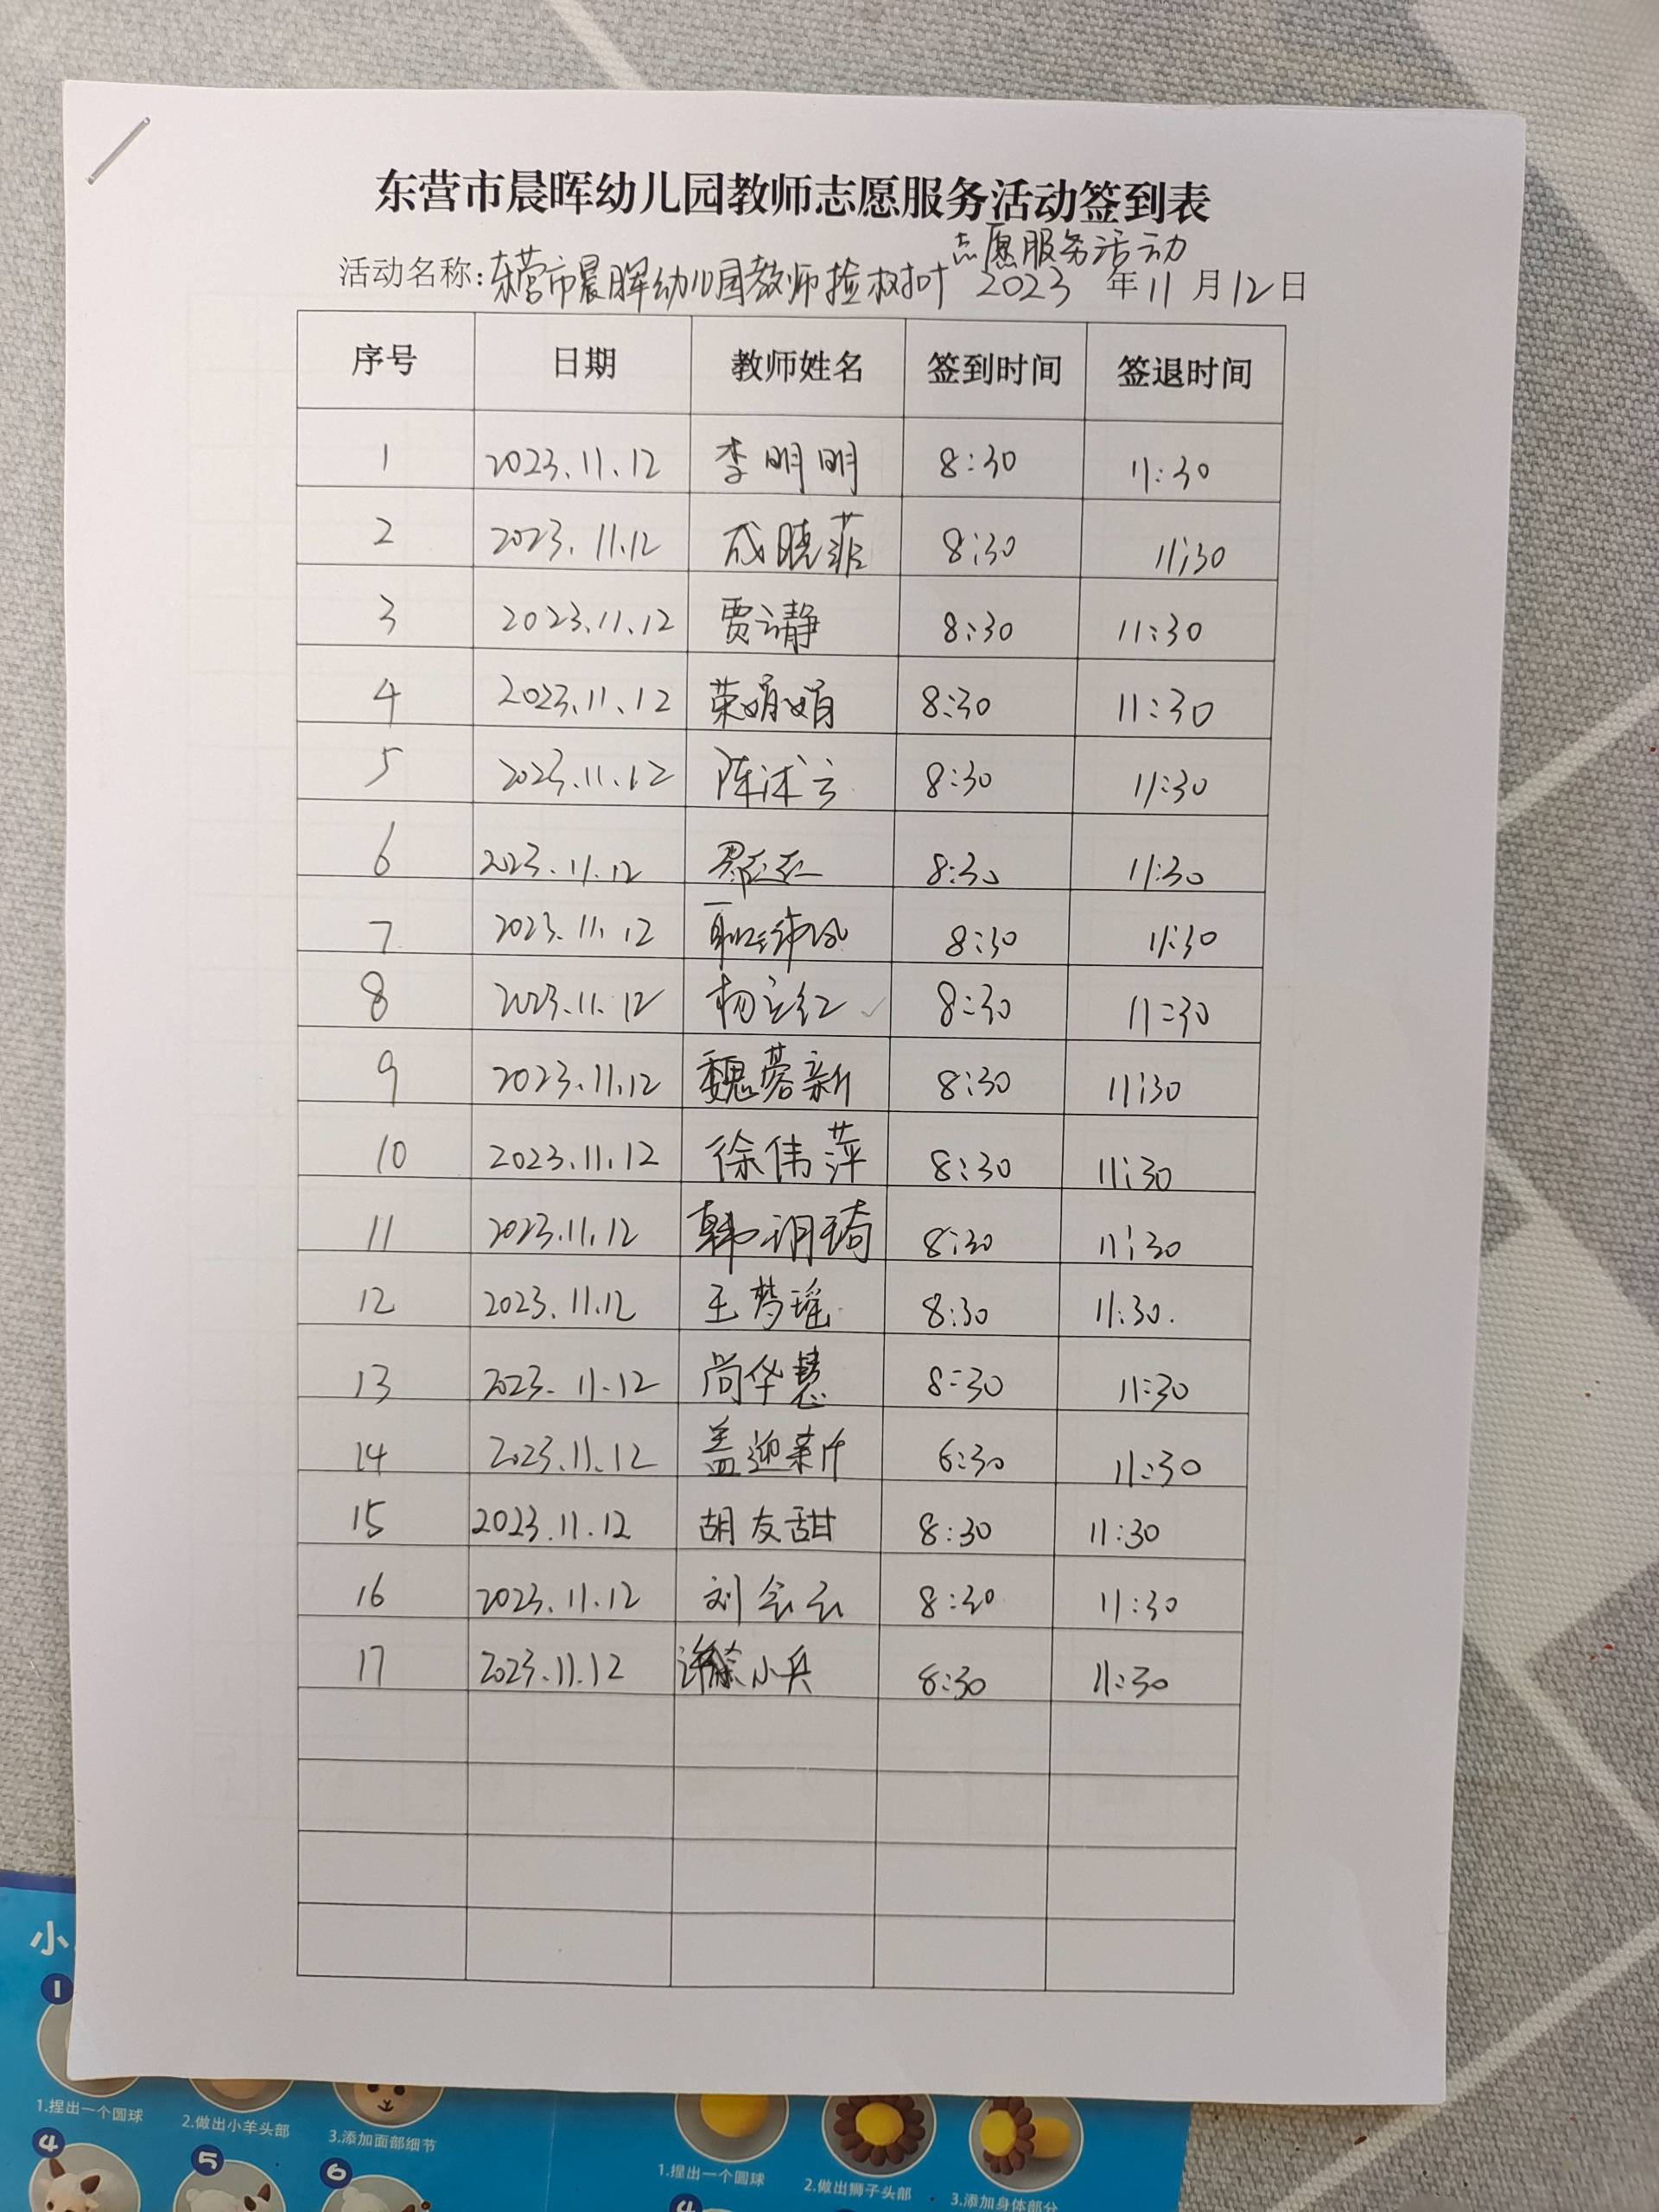 东营市晨晖幼儿园教师志愿服务活动签到表
志愿服务活动
活动名称:东营市晨晖幼儿园教师捡树叶 2023 年 11 月 12 日
序号 日期 教师姓名 签到时间 签退时间
1 2023.11.12 李明明 8:30 11:30
2 2023.11.12 成晓菲 8:30 11:30
3 2023.11.12 贾云静 8:30 11:30
4 2023.11.12 荣娟娟 8:30 11:30
5 2023.11.12 陈沭言 8:30 11:30
6 2023.11.12 8:30 11:30
7 2023.11.12 8:30 11:30
8 2023.11.12 杨立红 8:30 11:30
9 2023.11.12 魏蓉新 8:30 11:30
10 2023.11.12 徐伟萍 8:30 11:30
11 2023.11.12 韩玥琦 8:30 11:30
12 2023.11.12 王梦瑶 8:30 11:30.
13 2023.11.12 尚华慧 8:30 11:30
14 2023.11.12 盖迎新 8:30 11:30
15 2023.11.12 胡友甜 8:30 11:30
16 2023.11.12 刘会云 8:30 11:30
17 2023.11.12 小兵 8:30 11:30
小
1
1.捏出一个圆球
2.做出小羊头部
3.添加面部细节
4
5
6
1.捏出一个圆球
2.做出狮子头部
3.添加身体部分
4